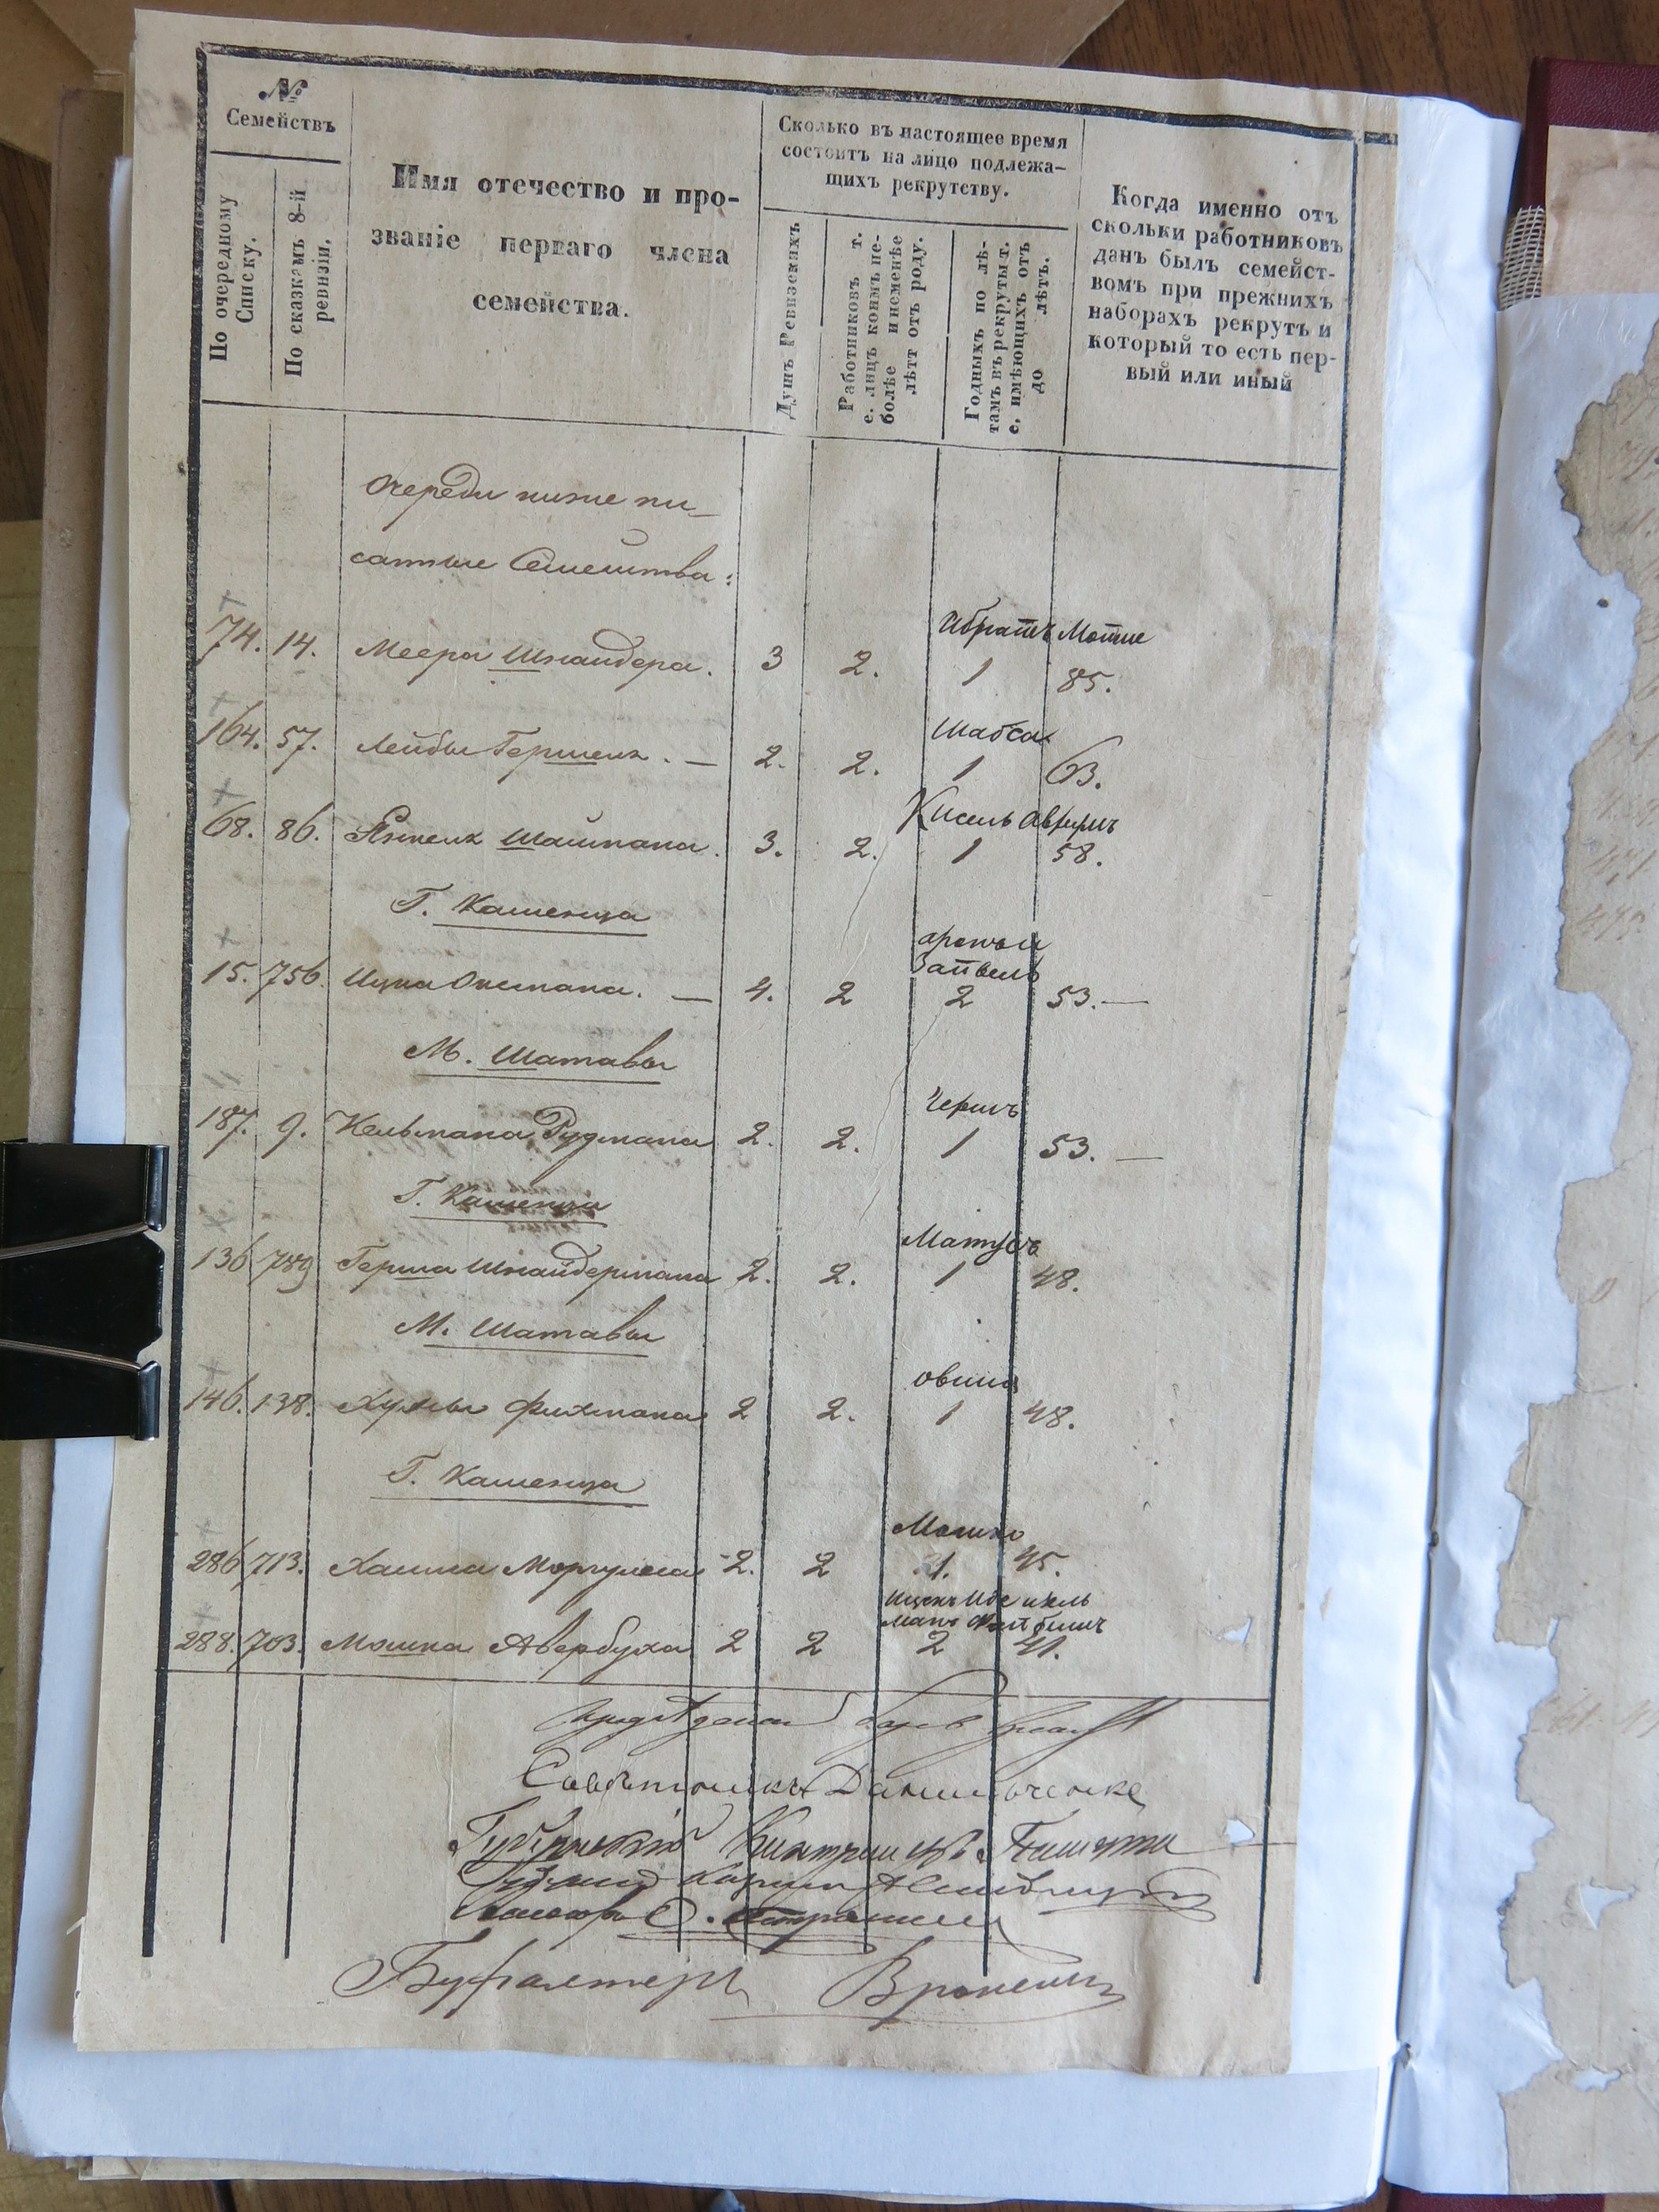 №
Семействъ
По очередному
Списку.
По сказкамъ 8-й
ревизіи.
Имя отечество и про-
званіе перваго члена
семейства.
Сколько въ настоящее время
состоитъ на лицо подлежа-
щихъ рекрутству.
Душъ Ревизскихъ
Работниковъ т.
е. лицъ коимъ не-
болѣе и неменѣе
лѣтъ отъ роду.
Годныхъ по лѣ-
тамъ въ рекруты т.
е. имѣющихъ отъ
до лѣтъ.
Когда именно отъ
сколки работниковъ
данъ былъ семейст-
вомъ при прежнихъ
наборахъ рекрутъ и
который то есть пер-
вый или иный
Очереди ниже пи-
санные Семейства:
Абрамъ Мотие
74. 14. Меера Шнайдера. 3 2. 1 85.
Шабса
164. 57. Лейбы Гершеля. — 2. 2. 1 63.
Кисель
68. 86. Янкеля 3. 2. 1 58.
Г. Каменца
Аронъ и
Зайвель
15. 756. Ицка Оксмана. — 4. 2 2 53. —
М. Шатавы
Гершъ
187. 9. Кельмана Рудмана 2. 2. 1 53. —
Г. Каменца
Матусъ
136 789 Герша Шнайдермана 2. 2. 1 48.
М. Шатавы
Овшия
146. 138. Фихмана 2 2. 1 48.
Г. Каменца
Мошко
286 713. Хаима Моргулиса 2. 2 1. 45.
288. 703. Мошка Авербуха 2 2 2 41.
Совѣтникъ
Губернскій
Бухгалтеръ